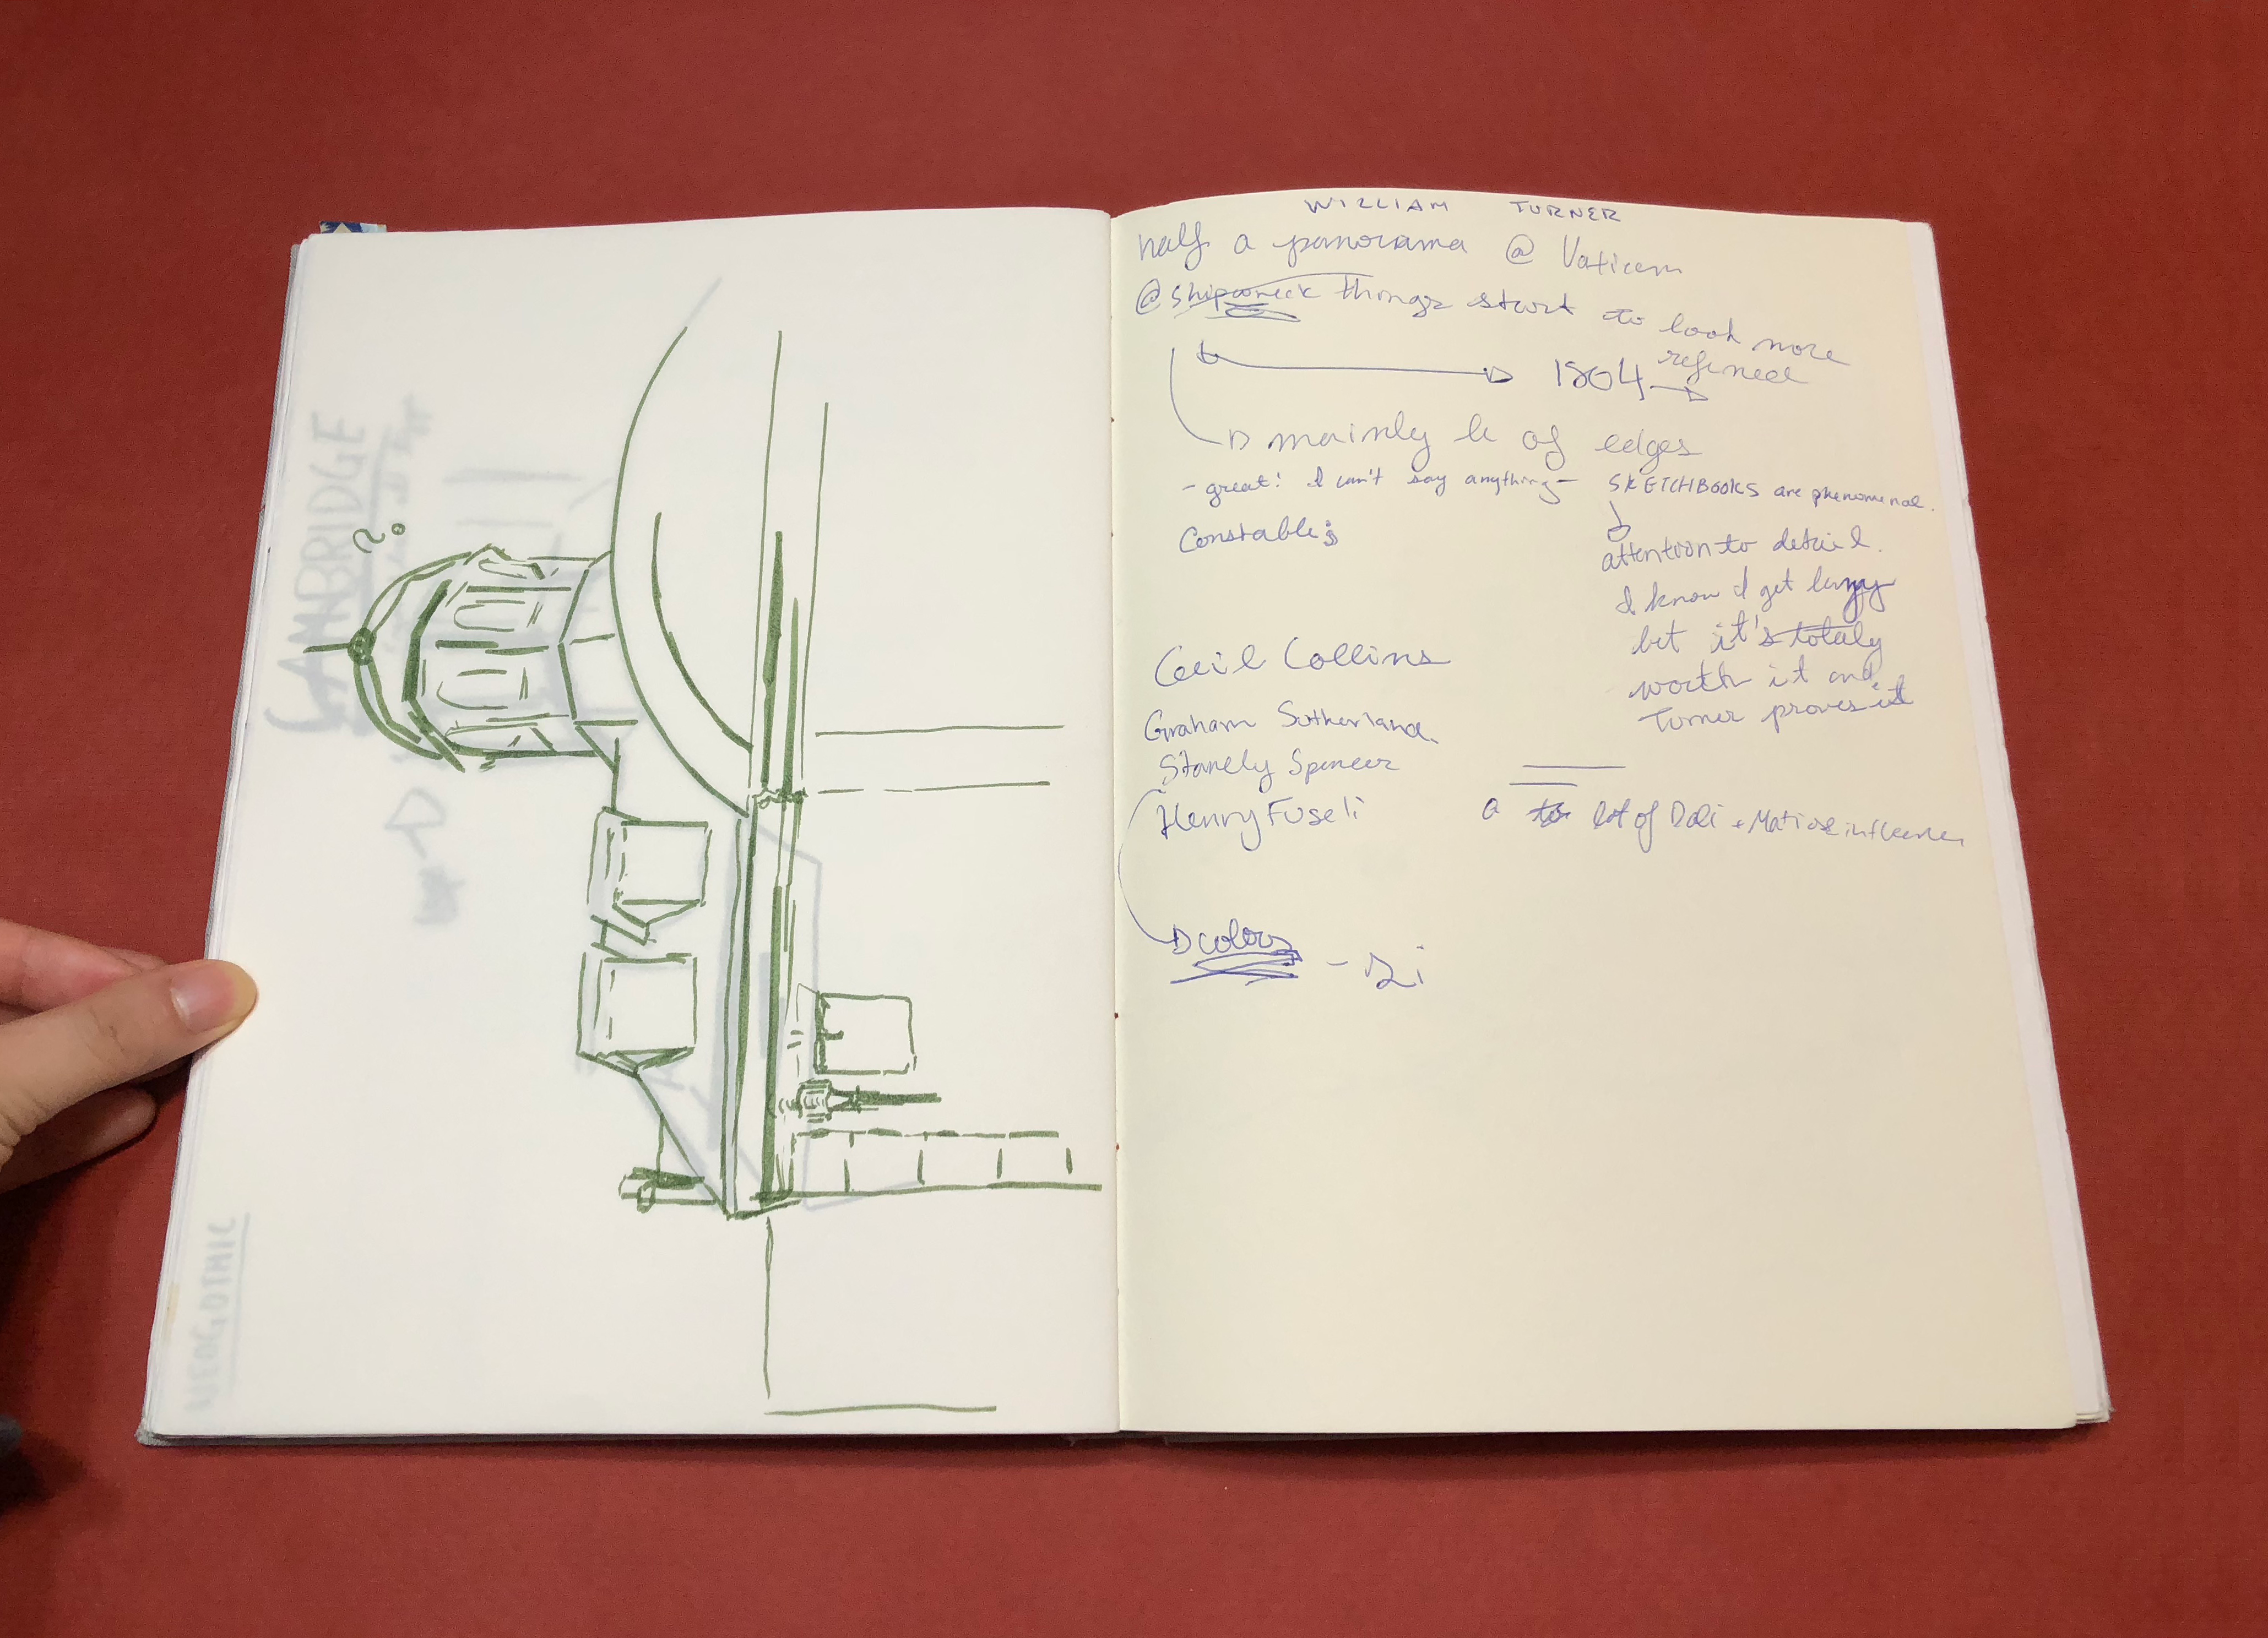 WILLIAM TURNER
half a panorama @ Vatican
@ shipwreck things start to look more
refined
1804
mainly of edges
- great! I can't say anything -
SKETCHBOOKS are phenomenal.
attention to detail.
I know I get lazy
but it's totaly
worth it and
Turner proves it
Constable:
Cecil Collins
Graham Sutherland.
Stanely Spencer
Henry Fuseli
a lot of Dali + Matisse influence
colors
CAMBRIDGE
NEOGOTHIC